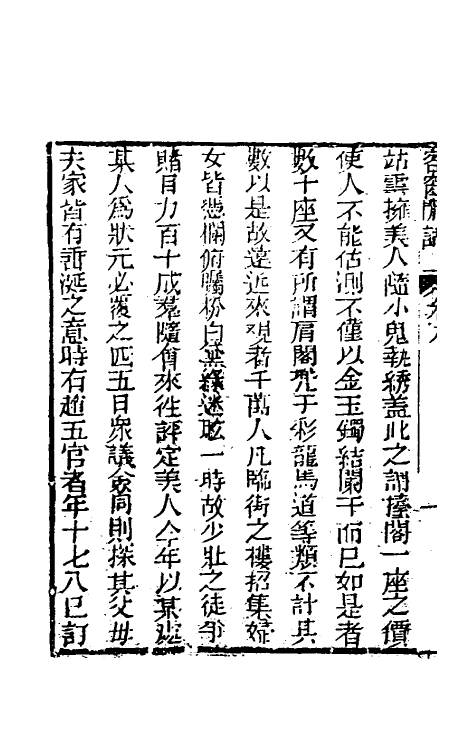 站雲擁美人隨小鬼執綉盖此之謂擡閣一座之價
使人不能估測不僅以金玉蠲結闌干而已如是者
數十座又有所謂肩閣凳子彩龍馬道等類不計其
數以是故遠近來观者千萬人凡臨街之樓招集婦
女皆憑欄俯矚粉白黛綠迷眩一時故少壯之徒爭
賭目力百十成羣隨會來徃評定美人今年以某處
某人爲狀元必覆之四五日衆議僉同則探其父母
夫家皆有垂涎之意時有趙五官者年十七八已訂